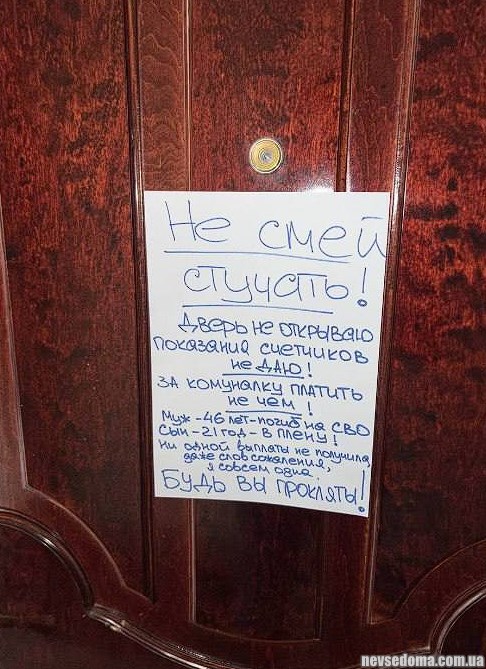 Не смей
стучать!
Дверь не открываю
показания счетчиков
не даю!
За комуналку платить
не чем!
Муж - 46 лет - погиб на СВО
Сын - 21 год - в плену!
Ни одной выплаты не получила,
даже слов сожаления,
я совсем одна.
Будь вы прокляты!
nevsedoma.com.ua